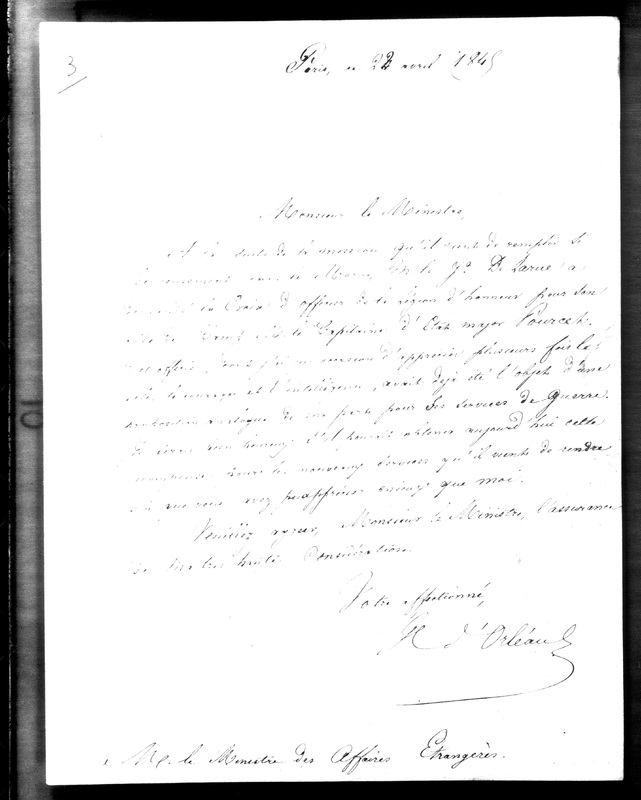 3
Paris, ce 22 avril 1845
Monsieur le Ministre,
A la suite de la mission qu'il vient de remplir si
heureusement avec le Maroc, le Gal De Larue a
la Croix d'officier de la Légion d'honneur pour son
le Capitaine d'Etat major Pourcet.
officier, d'apprécier plusieurs fois le
le courage et l'intelligence, avait déjà été l'objet d'une
analogue de ma part pour ses services de guerre.
Je serais bien heureux s'il pouvait obtenir aujourd'hui cette
récompense pour les nouveaux services qu'il vient de rendre
et que vous avez pu apprécier mieux que moi.
Veuillez agréer, Monsieur le Ministre, l'assurance
de ma très haute considération.
Votre affectionné,
H d'Orléans
M. le Ministre des Affaires Etrangères.
10